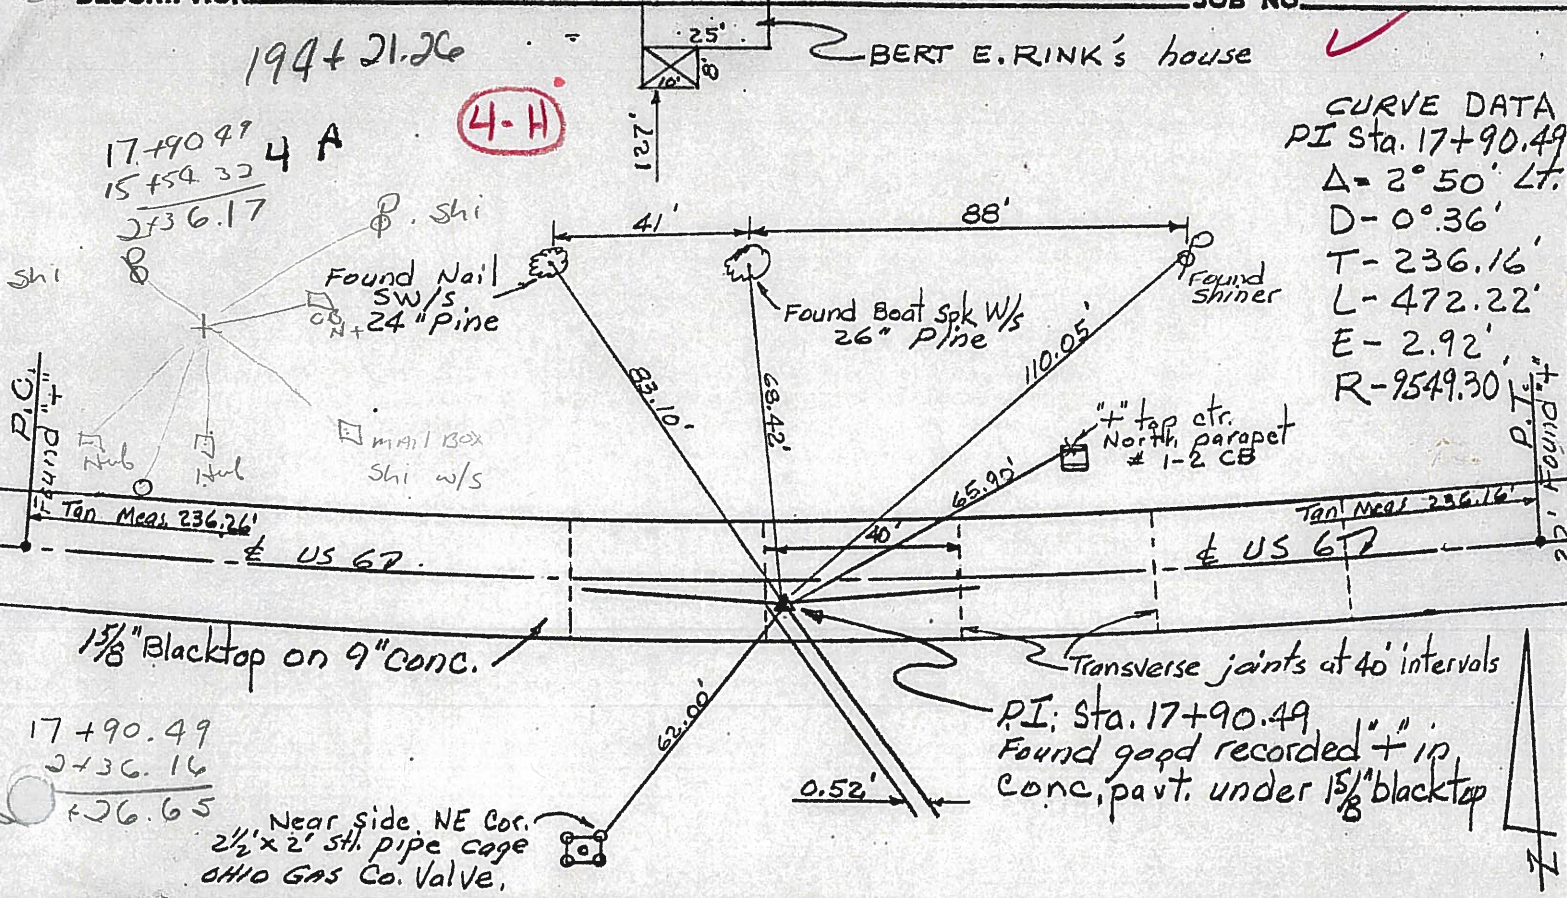 JOB NO.
194+21.26
25'
8'
10'
BERT E. RINK's house
4-H
122'
17+90.49
15+54.32
2+36.17
4 A
CURVE DATA
PI Sta. 17+90.49
Δ= 2°50' Lt.
D- 0°.36'
T- 236.16'
L- 472.22'
E- 2.92'
R- 9549.30'
Shi
Shi
41'
88'
Found Nail
SW/s
24" Pine
Found Boat Spk W/s
26" Pine
Found
Shiner
CB
N+
83.10'
68.42'
110.05'
65.90'
"+" top ctr.
North parapet
# 1-2 CB
P.C.
Found "+"
P.T.
Found "+"
Hub
Hub
mail Box
Shi w/s
Tan Meas. 236.26'
Tan Meas 236.16'
40'
℄ US 6
℄ US 6
1 5/8" Blacktop on 9" Conc.
Transverse joints at 40' intervals
P.I. Sta. 17+90.49
Found good recorded "+" in
Conc. pavt. under 1 5/8" blacktop
17+90.49
2+36.16
+26.65
62.00'
0.52'
Near side NE Cor.
2½' x 2' stl. pipe cage
OHIO GAS Co. Valve.